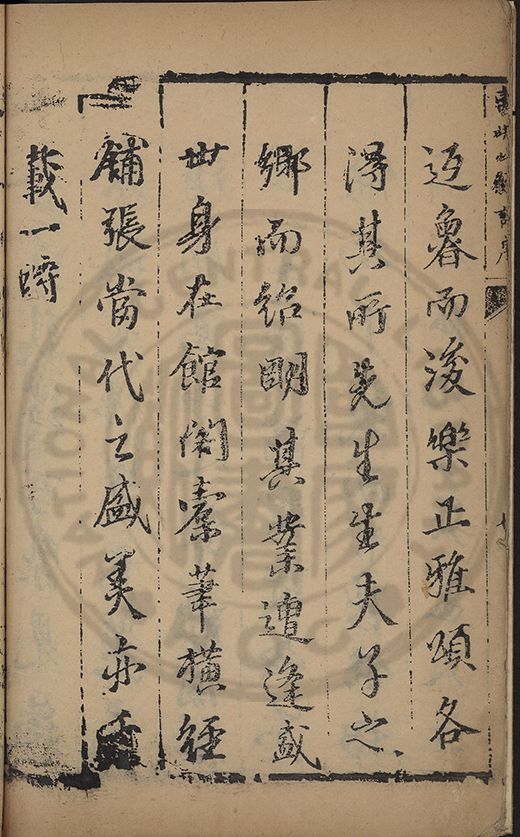 返魯而後樂正雅頌各
得其所先生生夫子之
鄉而紹明其業遭逢盛
世身在館閣橐筆橫經
鋪張當代之盛美亦千
載一時